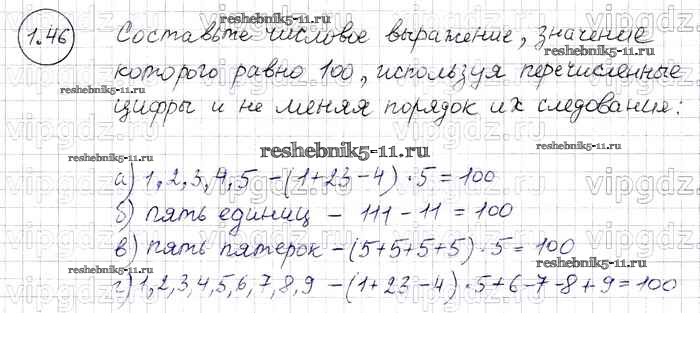 1.46 Составьте числовое выражение, значение
которого равно 100, используя перечисленные
цифры и не меняя порядок их следования:
reshebnik5-11.ru
reshebnik5-11.ru
reshebnik5-11.ru
reshebnik5-11.ru
а) 1, 2, 3, 4, 5 - (1+23-4)·5=100
б) пять единиц - 111-11=100
в) пять пятерок - (5+5+5+5)·5=100
reshebnik5-11.ru
reshebnik5-11.ru
г) 1,2,3,4,5,6,7,8,9 - (1+23-4)·5+6-7-8+9=100
vipgdz.ru
vipgdz.ru
vipgdz.ru